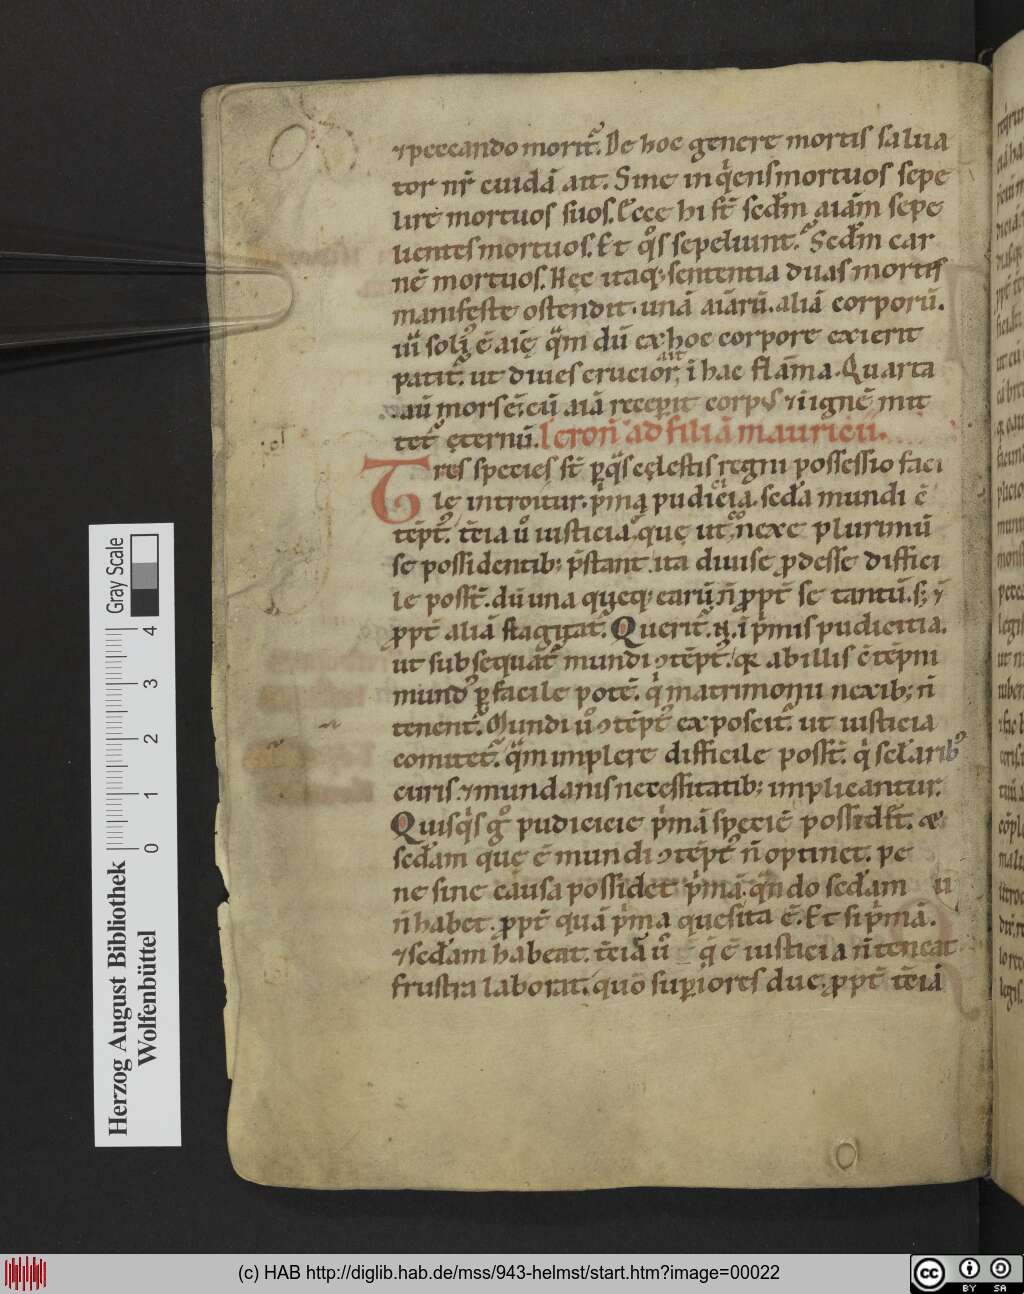 ⁊peccando morit᷑. De hoc genere mortis salua
tor nr̄ cuidā ait. Sine inq̇ens mortuos sepe
lire mortuos suos. Ecce hi st̄ sed̄m aīam sepe
lientes mortuos. Et qͦs sepeliunt. Sed̄m car
nē mortuos. Hęc itaq; sententia duas mortis
manifeste ostendit. unā aīarū. aliā corporū.
solī ē aīę qm̄ dū ex hoc corpore exierit
patit᷑. ut diues crucior, aīt ī hac flām̄a. Quarta
aū mors ē. cū aīā recep̲it corpus ⁊ ī ignē mit
tet᷑ ęternū. Ieron̄ ad filiā mauricii.
Tres species st̄ p̲ q̈s cęlestis regni possessio faci
le introitur. p̄ma pudicicia. sed̄a mundi ē
tēpt᷒. t̄cia u̇ iusticia. quę ut nexe plurimū
se possidentib; p̄stant. ita diuise ꝓdesse diffici
le poss̄t. dū una quęq; earū n̄ ꝓpt̄ se tantū. s; ⁊
ꝓpt̄ aliā flagitat᷑. Querit᷑. N. ī p̄mis pudicitia.
ut subsequat᷑ mundi ↄtēpt᷒. qꝛ ab illis ētēpni
mund᷒ p̲ facile potē. q̇ matrimonii nexib; n̄
tenent᷑. Mundi u̇ ↄtēpt᷒ exposcit᷑. ut iusticia
comitet᷑. qm̄ implere difficile poss̄t. q̇ sec̄larib᷒
curis. ⁊ mundanis necessitatib; implicantur.
Quisq̇s gͦ pudicicie p̄mā spęciē possid&. &
sed̄am quę ē mundi ↄtēpt᷒ n̄ optinet. pe
ne sine causa possidet p̄mā. qn̄do sed̄am u
n̄ habet. ꝓpt̄ quā p̄ma quesita ē. Et si p̄mā.
⁊ sed̄am habeat. t̄ciā u̇ q̄ ē iusticia n̄ teneat
frustra laborat. quō sup̲iores duę, ꝓpt̄ t̄ciā
Gray Scale
0 1 2 3 4
Herzog August Bibliothek
Wolfenbüttel
(c) HAB http://diglib.hab.de/mss/943-helmst/start.htm?image=00022
cc BY SA